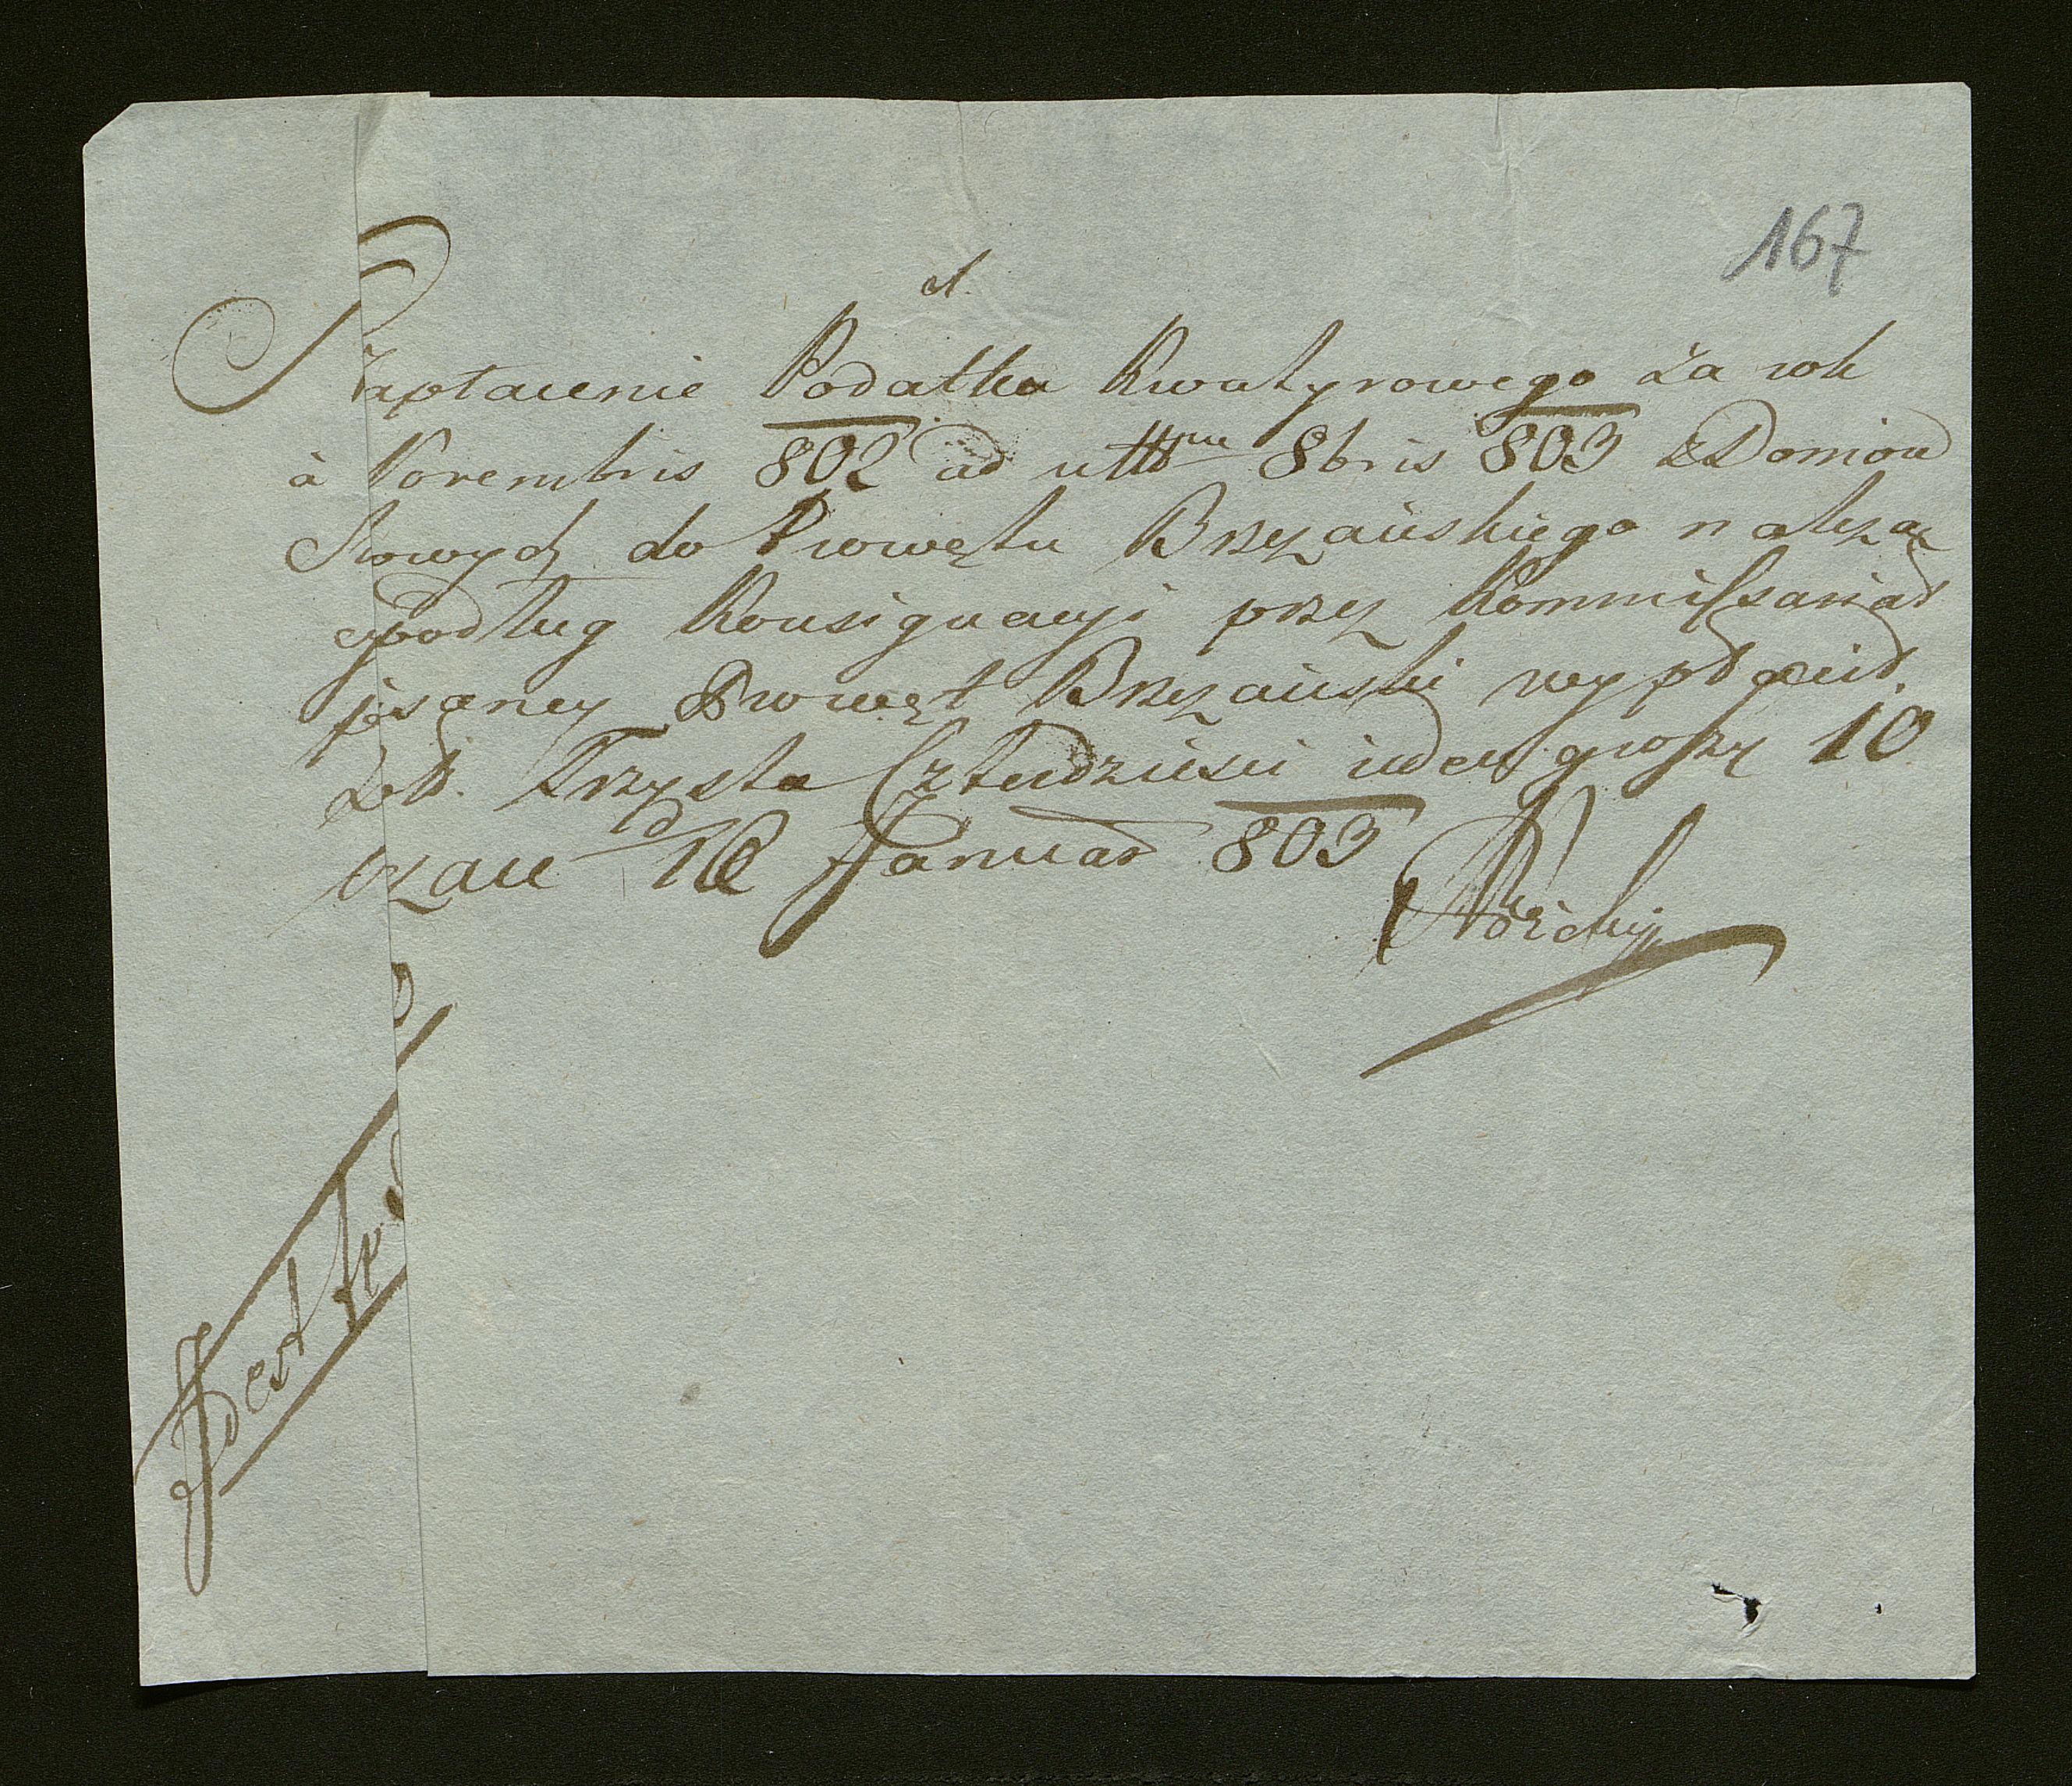 167
Na
Zapłacenie Podatku Kwatyrowego za rok
à Novembris 802 ad ultim 8bris 803 z Domów
do Prowętu Brzezańskiego należąc
podług Konsignacyi przez Kommissariat
pisaney Prowęt Brzezański wypłacił
Zł. Trzysta Czterdzieści ieden groszy 10
d 16 Januar 803
Idest